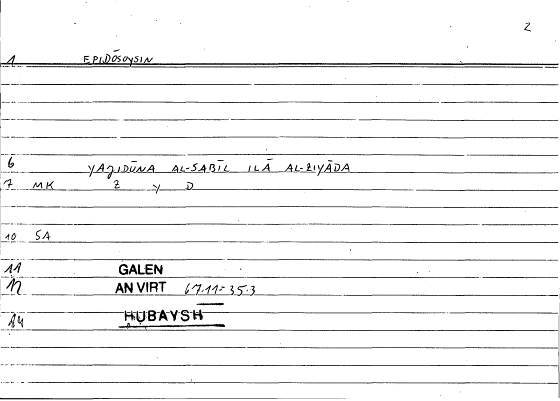 2
1 EPIDŌSOYSIN
6 YAJIDŪNA AL-SABĪL ILĀ AL-ZIYĀDA
7 MK Z Y D
10 SA
11 GALEN
12 AN VIRT 67.11=35.3
14 ḤUBAYSH